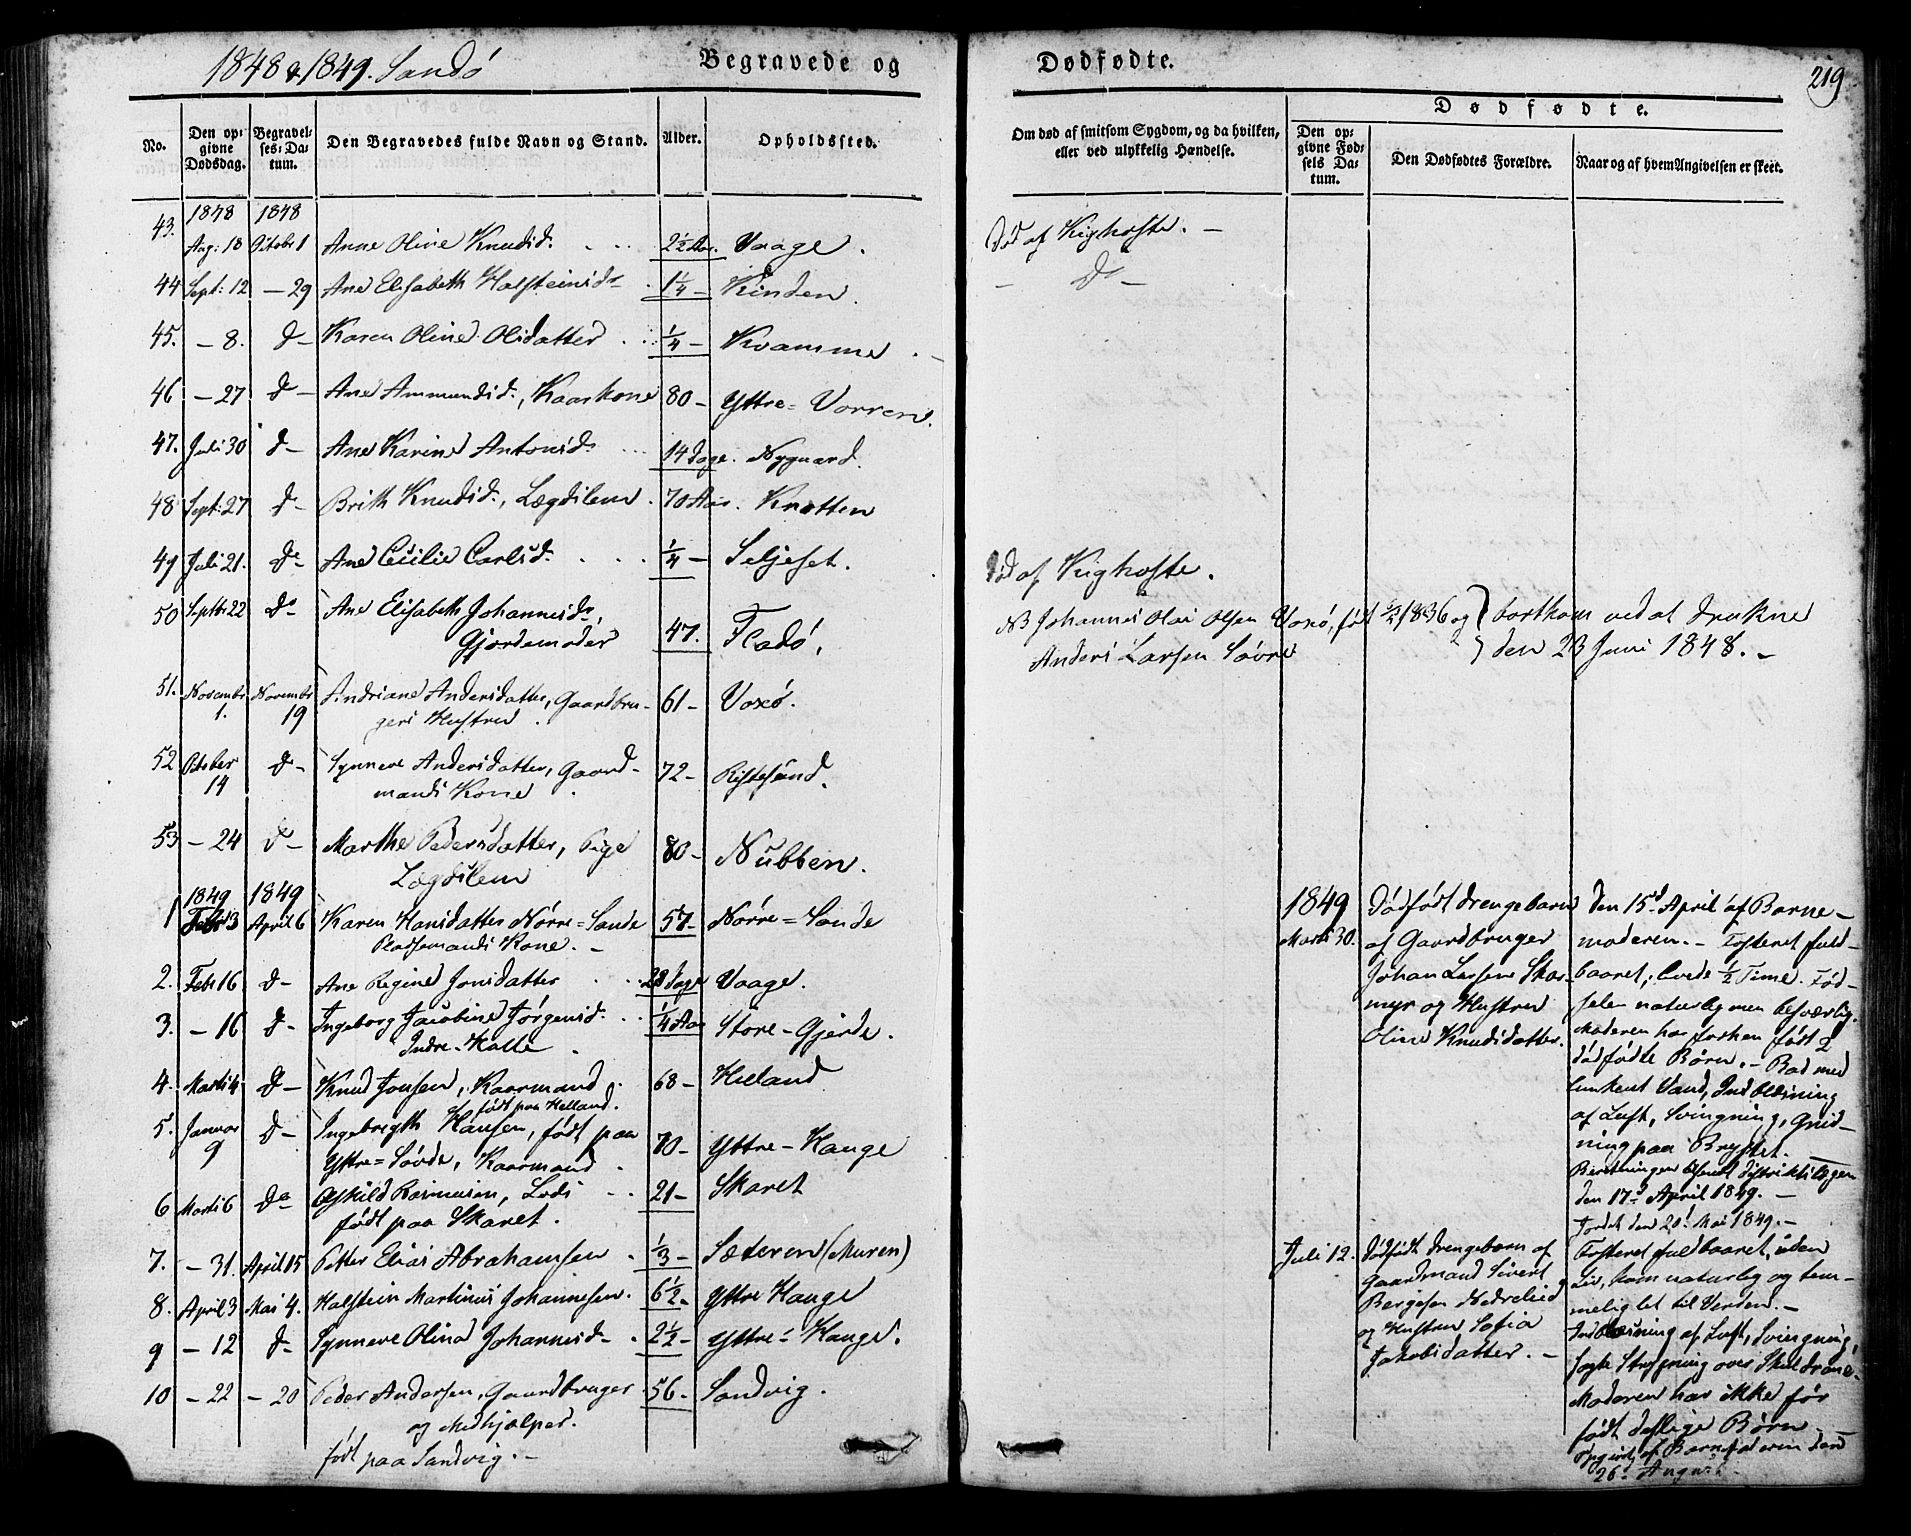 1848 & 1849. Sandö
Begravede og
Dødfødte.
219
No.
Den opgivne Dødsdag.
Begravelses-Datum.
Den Begravedes fulde Navn og Stand.
Alder.
Opholdssted.
Om død af smitsom Sygdom, og da hvilken, eller ved ulykkelig Hændelse.
Dødfødte.
Den opgivne Fødsels Datum.
Den Dødfødtes Forældre.
Naar og af hvem Angivelsen er skeet.
1848 1848
43. Aug: 18 Octobr 1 Anne Oline Knudsd. 2½ Aar. Vaage. Død af Kighoste. -
44 Sept: 12 - 29 Ane Elisabeth Halsteinsd. 1¼ - Kinden. - Do -
45. - 8. Do - Karen Oline Olsdatter ¼ - Kvamme.
46 - 27 Do - Ane Ammundsd., Kaarkone 80 - Yttre = Vorren.
47. Juli 30 Do - Ane Karine Antonsd. 14 Dage. Nygaard.
48 Sept: 27 Do - Brith Knudsd., Lægdslem. 70 Aar. Knotten
49 Juli 21. Do - Ane Cecilie Carlsd. ¼ - Seljeset. Død af Kighoste.
50 Septbr 22 Do - Ane Elisabeth Johannesd., 47. Fladö.
Gjordemoder
NB Johannes Olai Olsen Voxö, født 1836 og } bortkom ved at drukne
Anders Larsen Søvre } den 23 Juni 1848. -
51. Novembr 1. Novembr 19 Andriane Andersdatter, Gaardbru- 61 - Voxö.
gers Hustru.
52 October 14 Do - Synneve Andersdatter, Gaard- 72 - Ristesund.
mands Kone
53 - 24 Do - Marthe Pedersdatter, Pige 80 - Nubben.
Lægdslem
1849 1849
1 Febr 3 April 6 Karen Hansdatter Nörre = Sande 57 - Nörre = Sande
Pladsemands Kone. -
2. Febr 16 Do - Ane Regine Jonsdatter 28 Dage Vaage.
3. - 16 Do - Ingeborg Jacobine Jörgensd. ¼ Aar Store - Gjerde.
4. Marts 4 Do - Knud Jonsen, Kaarmand. 68 - Helland
født paa Helland.
5. Januar 9 Do - Ingebrigth Hansen, født paa 70 - Yttre - Hauge
Yttre = Søvde, Kaarmand.
6 Marts 6 Do Eskild Rasmusen, Lods 21 - Skaret
født paa Skaret.
7. - 31. April 15 Petter Elias Abrahamsen ⅓ - Sæteren (Muren)
8. April 3 Mai 4. Halstein Martinus Johannesen. 6½ - Yttre Hauge
9 - 12 Do - Synneve Olina Johannesd. 2½ - Yttre = Hauge.
10 - 22 - 20 Peder Andersen, Gaardbruger 56 - Sandvig.
og Medhjælper.
født paa Sandvig. -
1849
Marts 30.
Dødfødt Drengebarn
af Gaardbruger
Johan Larsen Skar-
myr og Hustru
Oline Knudsdatter.
Den 15de April af Barne-
moderen. - Fosteret fuld-
baaret; levede ½ Time. Fød-
selen naturlig men besværlig.
Moderen har forhen født 2
dødfødte Børn. - Bad med
lunkent Vand, Indblæsning
af Luft, Svingning, Gnid-
ning paa Brystet.
Beretningen afsendt Distriktslægen
den 17de April 1849. -
Jordet den 20de Mai 1849. -
Juli 12.
Dødfødt Drengebarn af
Gaardmand Sivert
Bergesen Nedrelied
og Hustru Sofia
Jakobsdatter. -
Fosteret fuldbaaret, uden
Liv, kom naturlig og tem-
melig let til Verden. -
Indblæsning af Luft, Svingning,
over Skuldrene.
Moderen har ikke før
født deslige Børn
af Barnefaderen den
26de August.